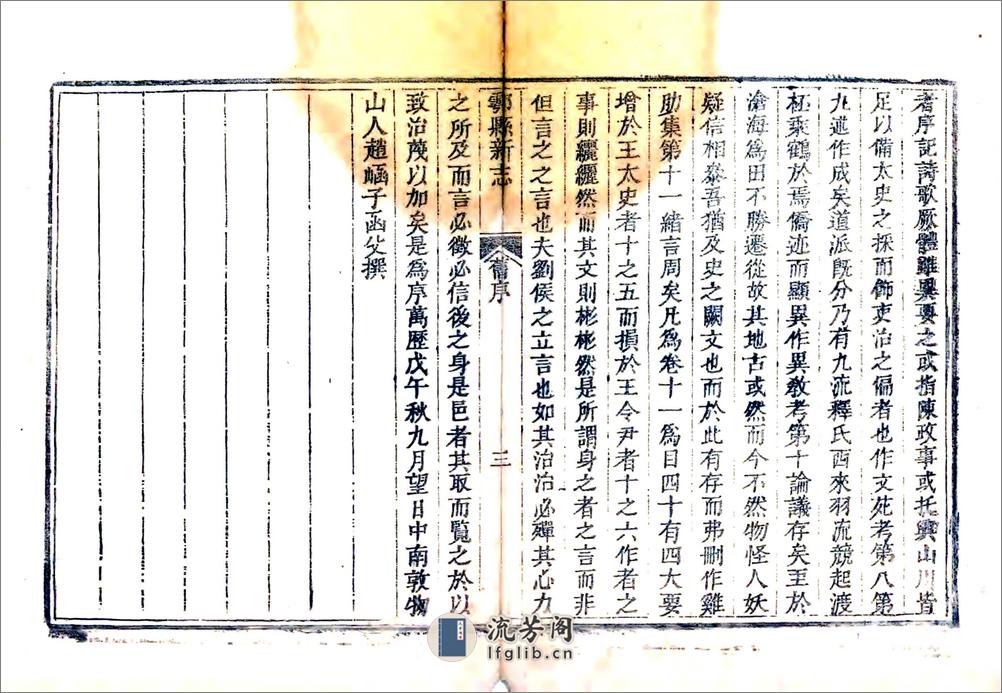 者序記詩歌厥體雖異要之或指陳政事或托興山川皆
足以備太史之採而飾吏治之偏者也作文苑考第八第
九述作成矣道派旣分乃有九流釋氏西來羽流競起渡
杯乘鶴於焉僑迹而顯異作異教考第十論議存矣至於
滄海爲田不勝遷從故其地古或然而今不然物怪人妖
疑信相叅吾猶及史之闕文也而於此有存而弗刪作雞
肋集第十一緒言周矣凡爲卷十一爲目四十有四大要
增於王太史者十之五而損於王令尹者十之六作者之
事則纚纚然而其文則彬彬然是所謂身之者之言而非
但言之之言也夫劉侯之立言也如其治治必殫其心力
鄠縣新志
舊序
三
之所及而言必徵必信後之身是邑者其取而覧之於以
致治茂以加矣是爲序萬歷戊午秋九月望日中南敦物
山人趙崡子函父撰
流芳阁
lfglib.cn